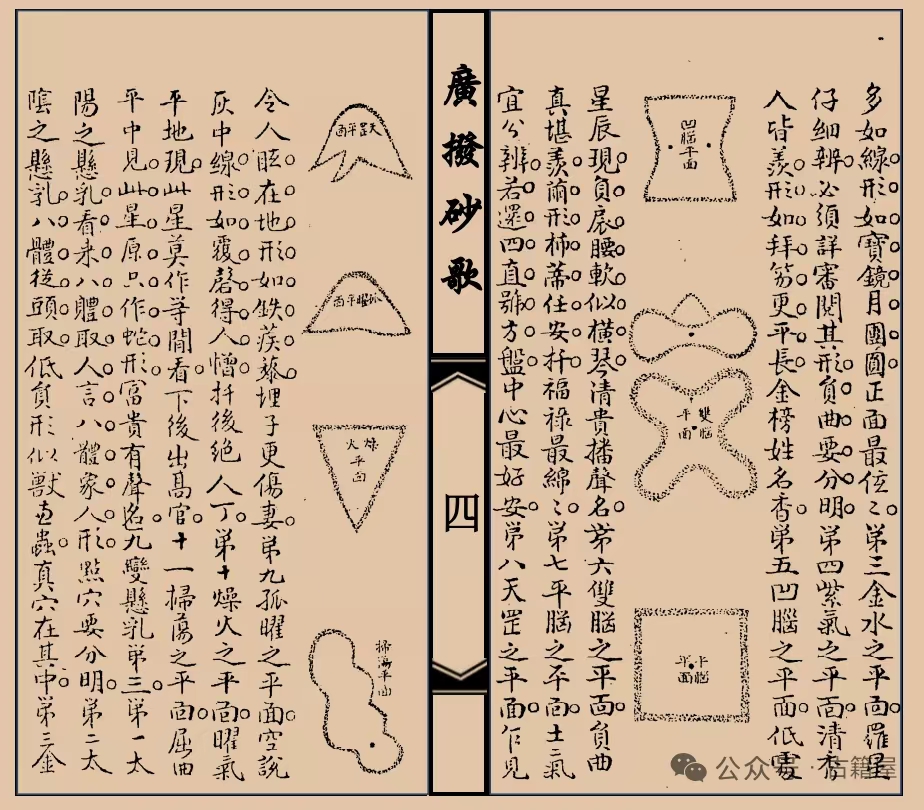 多如線形如寶鏡月團圓正面最位々第三金水之平面羅星
仔細辨必須詳審閱其形負曲要分明第四紫氣之平面清秀
人皆羨形如拜笏更平長金榜姓名香第五凹腦之平面低處
凹腦平面
雙腦平面
平腦平面
星辰現負扆腰軟似橫琴清貴播聲名第六雙腦之平面負曲
真堪羨兩形柿蒂任安扦福祿最綿々第七平腦之平面土氣
宜分辨若還四直號方盤中心最好安第八天罡之平面乍見
廣撥砂歌
四
天罡平面
孤曜平面
燥火平面
掃蕩平面
令人眩在地形如鉄蒺藜埋子更傷妻第九孤曜之平面空說
灰中線形如覆磬得人憎扦後絕人丁第十燥火之平面曜氣
平地現此星莫作等閒看下後出高官十一掃蕩之平面屈曲
平中見此星原只作蛇形富貴有聲名九變懸乳第三第一太
陽之懸乳看来八體取人言八體象人形點穴要分明第二太
陰之懸乳八體從頭取低負形似獸直蟲真穴在其中第三金
公众号·古籍屋